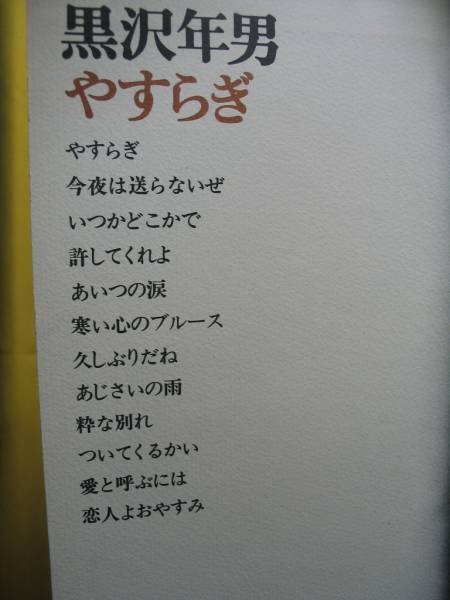 黒沢年男
やすらぎ
やすらぎ
今夜は送らないぜ
いつかどこかで
許してくれよ
あいつの涙
寒い心のブルース
久しぶりだね
あじさいの雨
粋な別れ
ついてくるかい
愛と呼ぶには
恋人よおやすみ